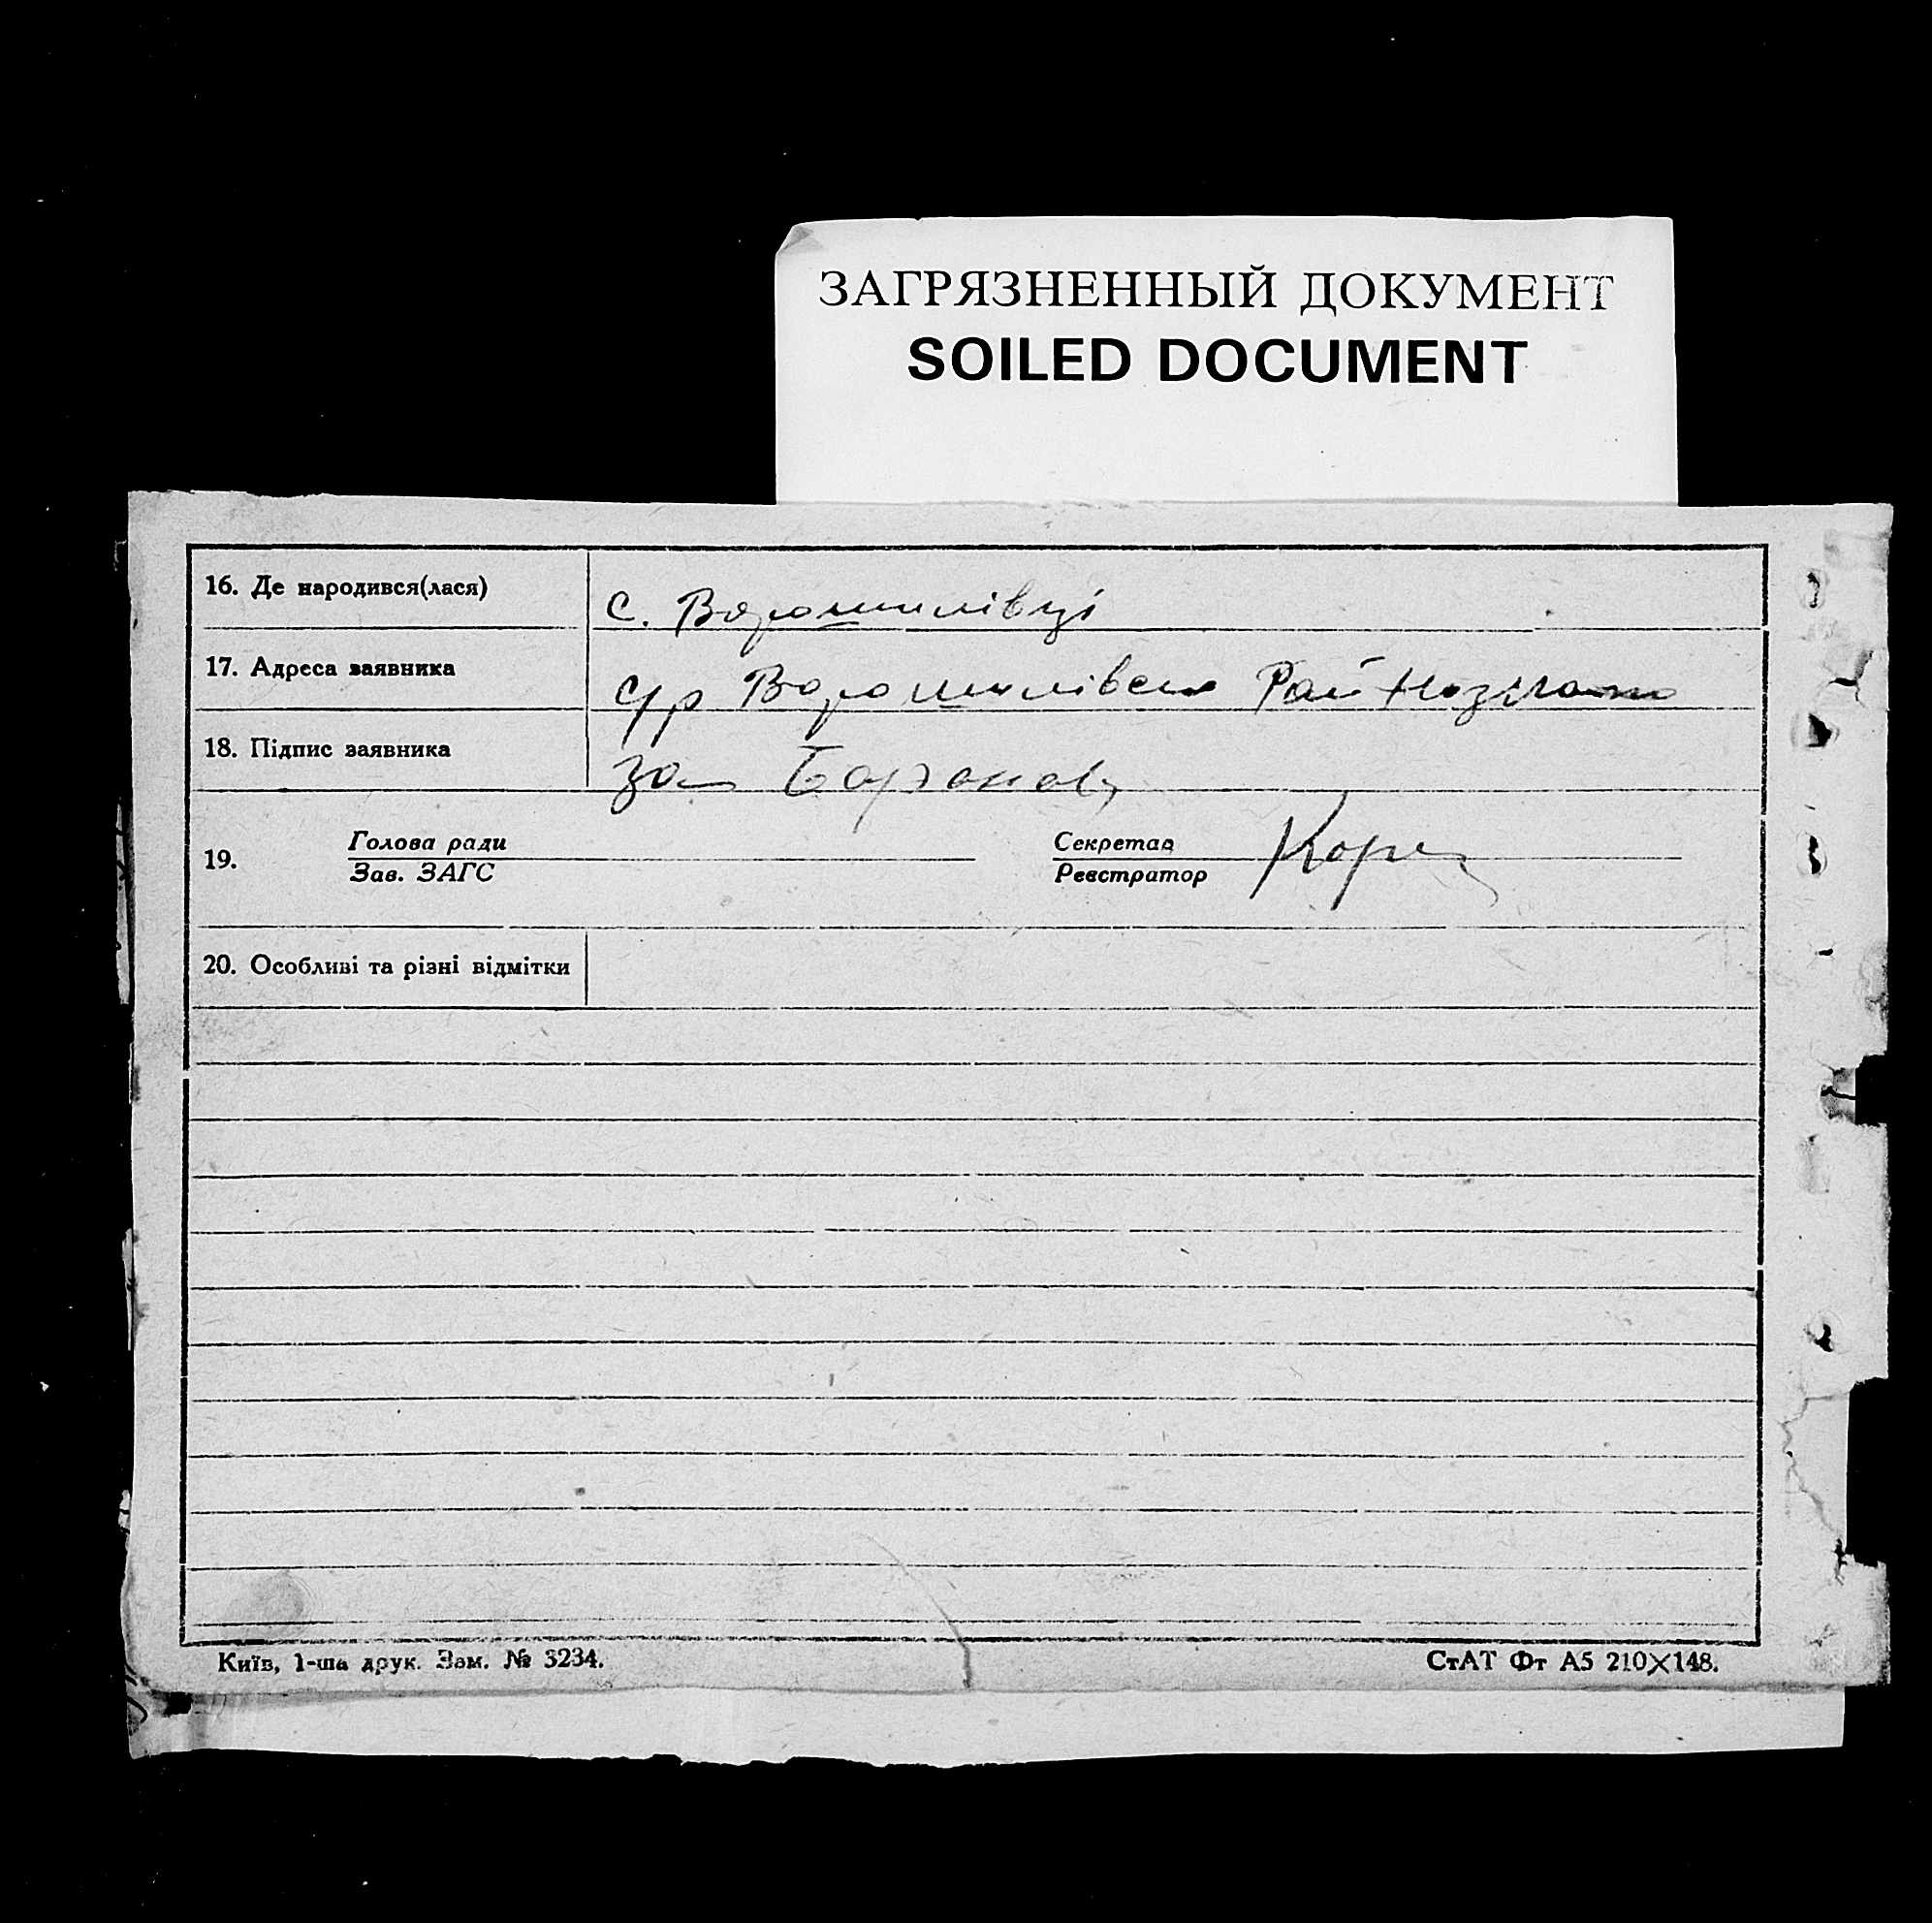 ЗАГРЯЗНЕННЫЙ ДОКУМЕНТ
SOILED DOCUMENT
16. Де народився(лася) с. Ворошилівці
17. Адреса заявника с/р Ворошилівська Рай
18. Підпис заявника за
19. Голова ради Секретар
Зав. ЗАГС Реєстратор
20. Особливі та різні відмітки
Київ, 1-ша друк. Зам. № 3234. СтАТ Фт А5 210×148.